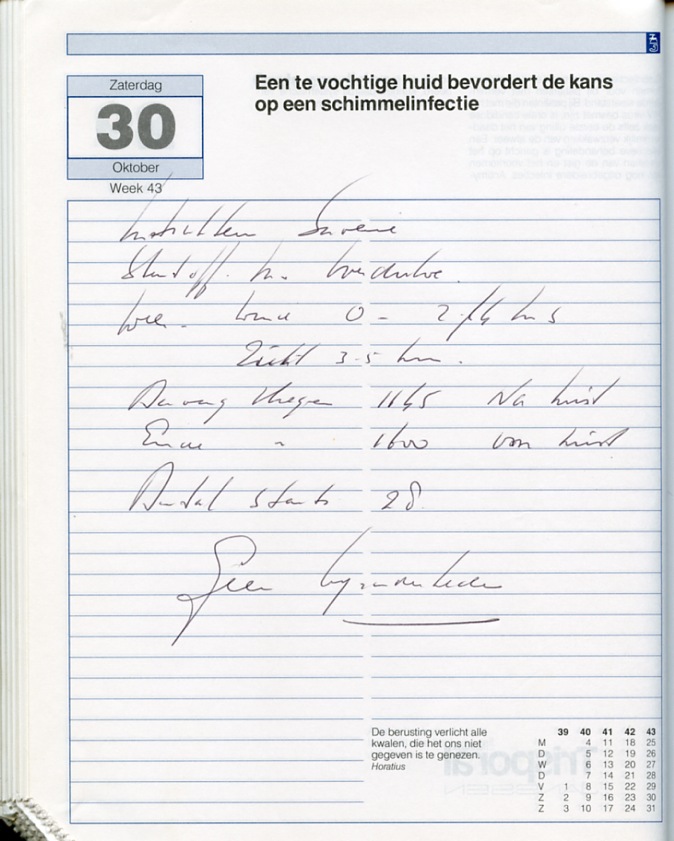 Zaterdag
30
Oktober
Week 43
Een te vochtige huid bevordert de kans
op een schimmelinfectie
Instructeur
Startoff.
Weer. wind 0 - 2
Zicht 3-5 km.
Aanvang vliegen 1145 Na
Einde " 1600 van
Aantal starts 28
Geen bijzonderheden
De berusting verlicht alle
kwalen, die het ons niet
gegeven is te genezen.
Horatius
39 40 41 42 43
M 4 11 18 25
D 5 12 19 26
W 6 13 20 27
D 7 14 21 28
V 1 8 15 22 29
Z 2 9 16 23 30
Z 3 10 17 24 31